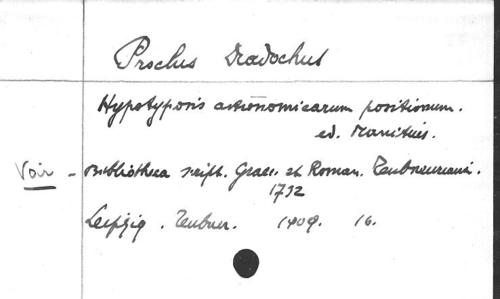 Proclus Diadochus
Hypotyposis astronomicarum positionum.
ed. Manitius.
Voir - Bibliotheca script. Graec. et Roman. Teubneriana.
1732
Leipzig. Teubner. 1909. 16.